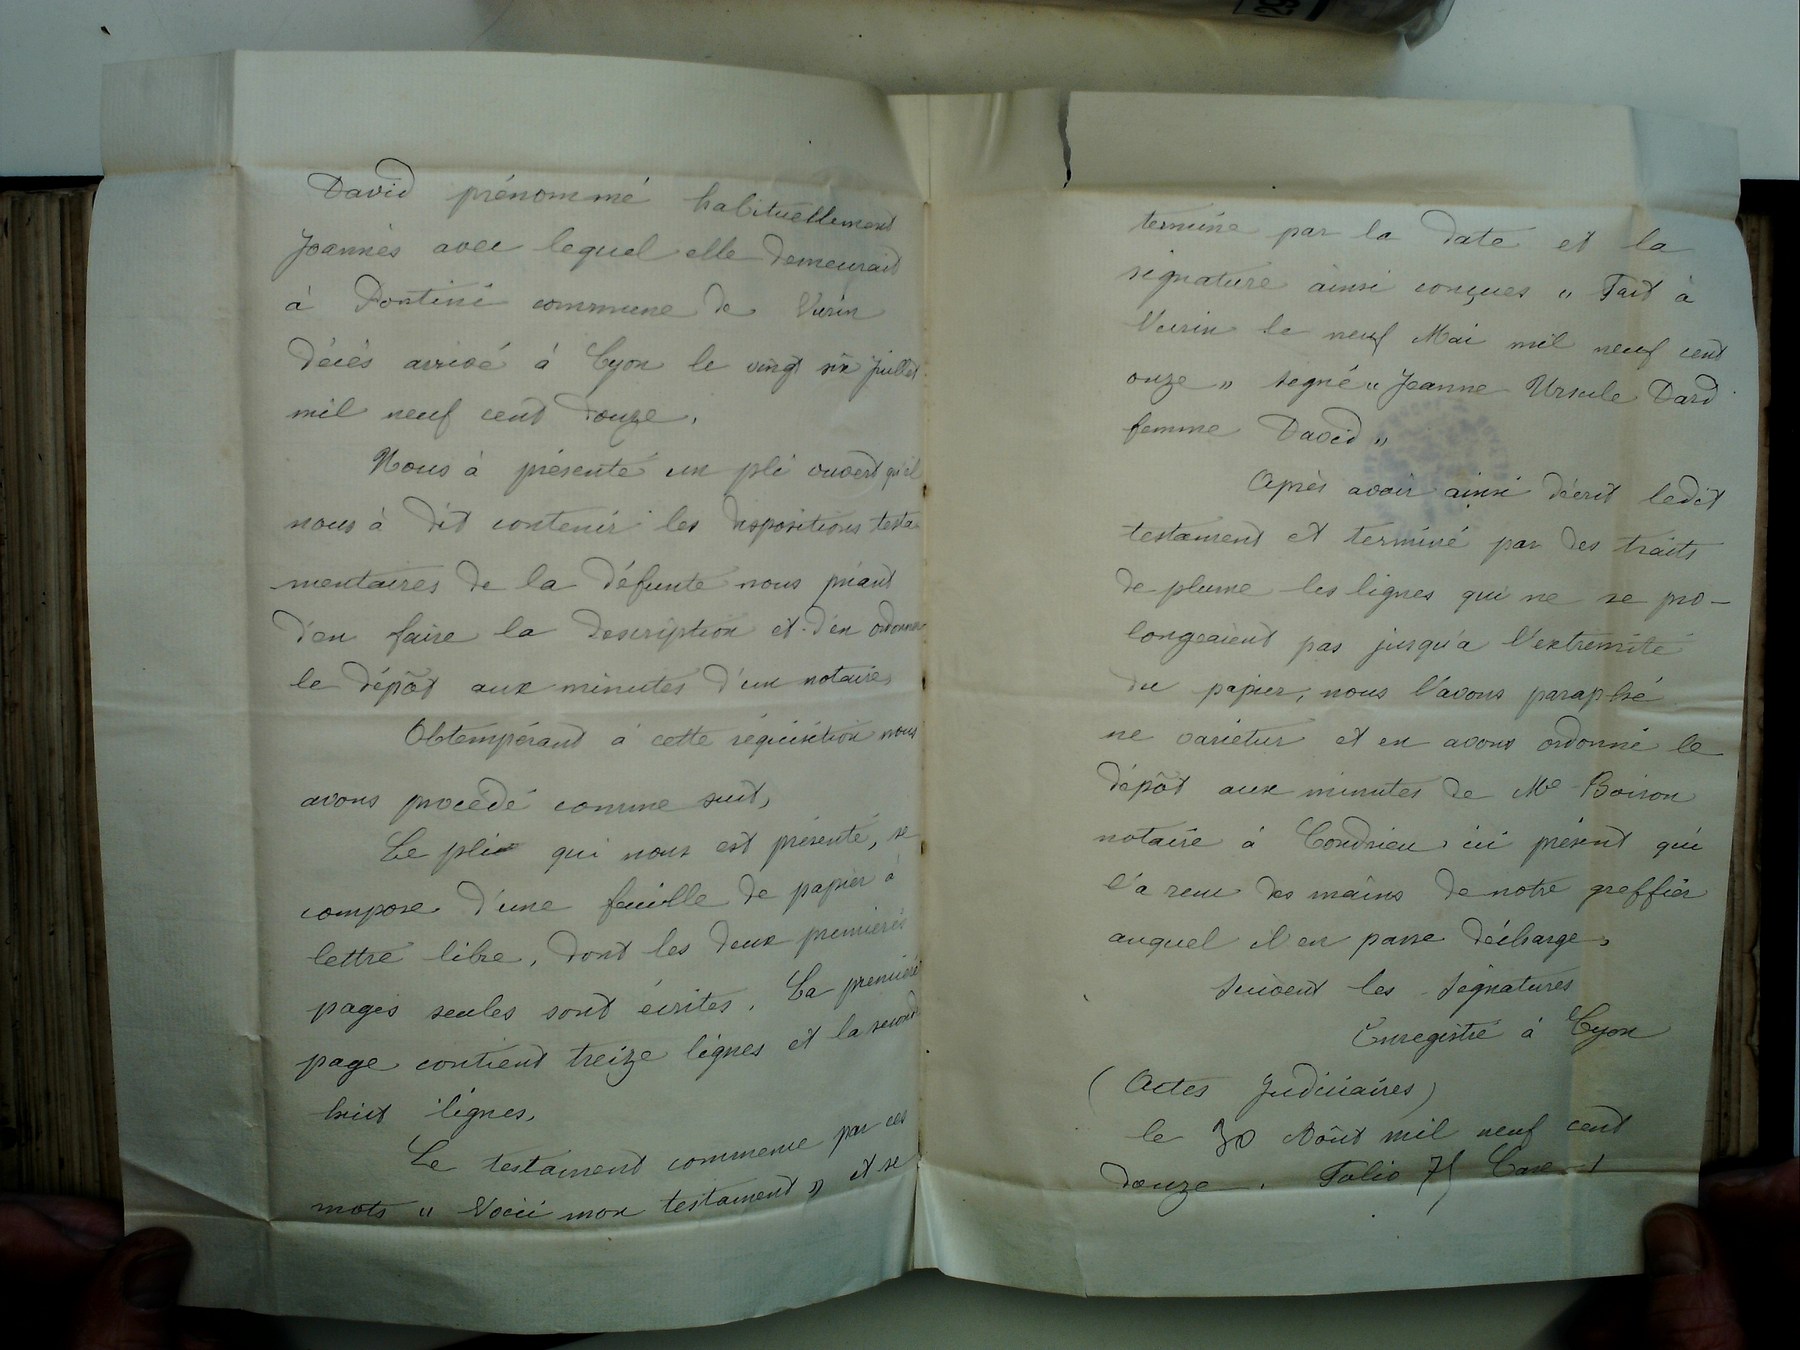 David prénommé habituellement
Joannès avec lequel elle demeurait
à commune de Vérin
décès arrivé à Lyon le vingt six juillet
mil neuf cent douze.
Nous à présenté un pli ouvert qu'il
nous à dit contenir les dispositions testa
mentaires de la défunte nous priant
d'en faire la description et d'en ordonner
le dépôt aux minutes d'un notaire,
Obtempérant à cette réquisition nous
avons procédé comme suit,
Le pli qui nous est présenté, se
compose d'une feuille de papier à
lettre libre, dont les deux premières
pages seules sont écrites. La première
page contient treize lignes et la seconde
huit lignes.
Le testament commence par ces
mots " Voici mon testament " et se
termine par la date et la
signature ainsi conçues " Fait à
Verin le neuf Mai mil neuf cent
onze " signé " Jeanne Ursule Dard
femme David "
Après avoir ainsi décrit ledit
testament et terminé par des traits
de plume les lignes qui ne se pro-
longeaient pas jusqu'à l'extrémité
du papier, nous l'avons paraphé
ne varietur et en avons ordonné le
dépôt aux minutes de Me Boiron
notaire à Condrieu ici présent qui
l'a reçu des mains de notre greffier
auquel il en passe décharge.
Suivent les signatures
Enregistré à Lyon
(Actes Judiciaires)
le 30 Août mil neuf cent
douze. Folio 75 Case 1